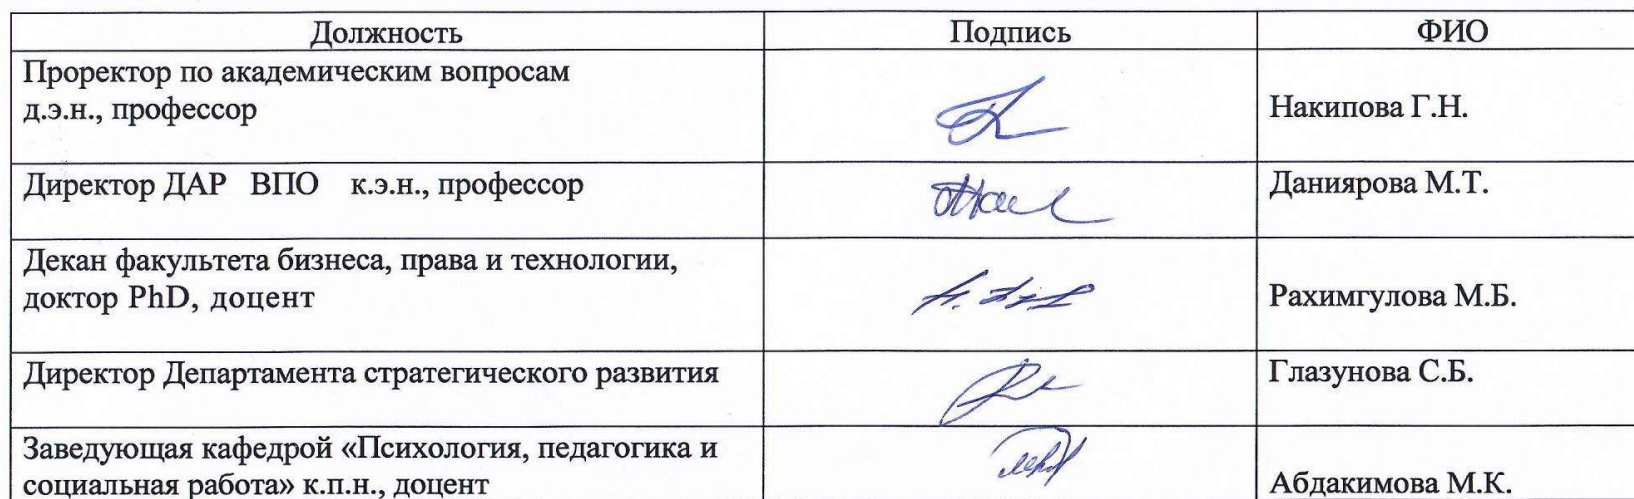 Должность Подпись ФИО
Проректор по академическим вопросам
д.э.н., профессор
Накипова Г.Н.
Директор ДАР ВПО к.э.н., профессор Даниярова М.Т.
Декан факультета бизнеса, права и технологии,
доктор PhD, доцент Рахимгулова М.Б.
Директор Департамента стратегического развития Глазунова С.Б.
Заведующая кафедрой «Психология, педагогика и
социальная работа» к.п.н., доцент Абдакимова М.К.